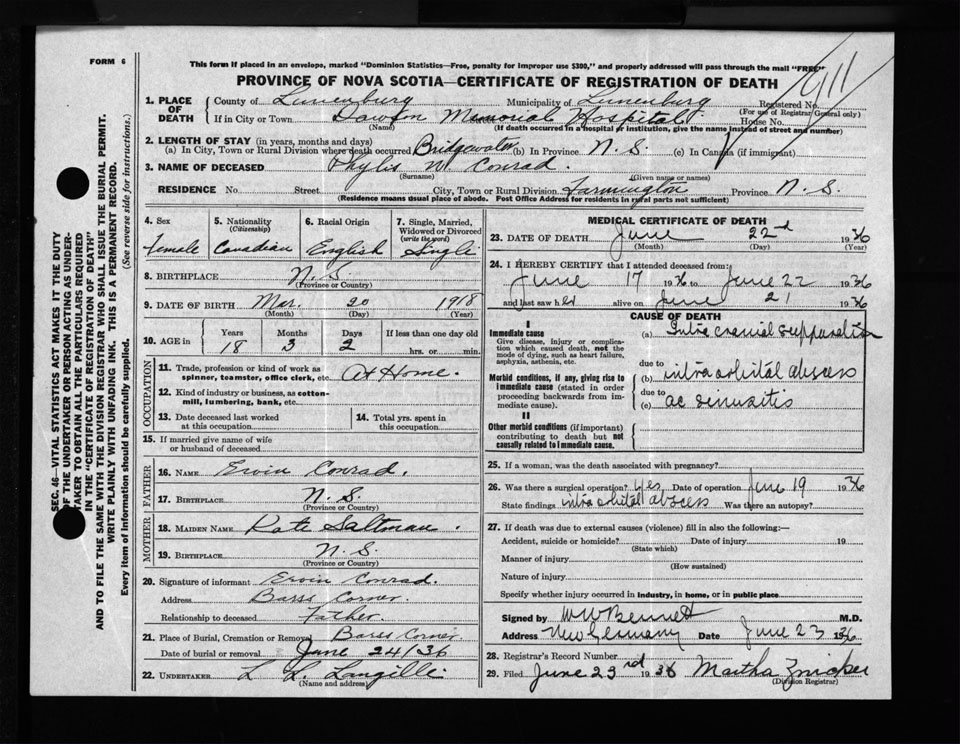 FORM 6
This form if placed in an envelope, marked "Dominion Statistics—Free, penalty for improper use $300," and properly addressed will pass through the mail "FREE"
PROVINCE OF NOVA SCOTIA—CERTIFICATE OF REGISTRATION OF DEATH
911
1. PLACE OF DEATH
County of Lunenburg Municipality of Lunenburg Registered No.
(For use of Registrar General only)
If in City or Town Dawson Memorial Hospital House No.
(Name) (If death occurred in a hospital or institution, give the name instead of street and number)
2. LENGTH OF STAY (in years, months and days)
(a) In City, Town or Rural Division where death occurred Bridgewater (b) In Province N. S. (c) In Canada (if immigrant)
3. NAME OF DECEASED Phylis W. Conrad.
(Surname) (Given name or names)
RESIDENCE No. Street City, Town or Rural Division Farmington Province N. S.
(Residence means usual place of abode. Post Office Address for residents in rural parts not sufficient)
4. Sex female
5. Nationality (Citizenship) Canadian
6. Racial Origin English
7. Single, Married, Widowed or Divorced (write the word) Single
8. BIRTHPLACE N. S.
(Province or Country)
9. DATE OF BIRTH Mar. 20 1918
(Month) (Day) (Year)
10. AGE in Years 18 Months 3 Days 2 If less than one day old hrs. or min.
OCCUPATION
11. Trade, profession or kind of work as spinner, teamster, office clerk, etc. At Home.
12. Kind of industry or business, as cotton-mill, lumbering, bank, etc.
13. Date deceased last worked at this occupation
14. Total yrs. spent in this occupation
15. If married give name of wife or husband of deceased
FATHER
16. NAME Ervin Conrad.
17. BIRTHPLACE N. S.
(Province or Country)
MOTHER
18. MAIDEN NAME Kate Saltman.
19. BIRTHPLACE N. S.
(Province or Country)
20. Signature of informant Ervin Conrad.
Address Barss Corner.
Relationship to deceased Father.
21. Place of Burial, Cremation or Removal Barss Corner.
Date of burial or removal June 24/36
22. UNDERTAKER L. L. Langille
(Name and address)
MEDICAL CERTIFICATE OF DEATH
23. DATE OF DEATH June 22nd 1936
(Month) (Day) (Year)
24. I HEREBY CERTIFY that I attended deceased from:
June 17 1936 to June 22 1936
and last saw her alive on June 21 1936
CAUSE OF DEATH
I
Immediate cause
Give disease, injury or complication which caused death, not the mode of dying, such as heart failure, asphyxia, asthenia, etc.
(a) Intra cranial suppuration
due to
Morbid conditions, if any, giving rise to immediate cause (stated in order proceeding backwards from immediate cause).
(b) intra orbital abscess
due to
(c) ac sinusitis
II
Other morbid conditions (if important) contributing to death but not causally related to immediate cause.
25. If a woman, was the death associated with pregnancy?
26. Was there a surgical operation? Yes Date of operation June 19 1936
State findings intra orbital abscess Was there an autopsy?
27. If death was due to external causes (violence) fill in also the following:—
Accident, suicide or homicide? Date of injury 19
(State which)
Manner of injury
(How sustained)
Nature of injury
Specify whether injury occurred in industry, in home, or in public place
Signed by W W Bennett M.D.
Address New Germany Date June 23 1936
28. Registrar's Record Number
29. Filed June 23rd 1936 Martha Zwicker
(Division Registrar)
SEC. 46—VITAL STATISTICS ACT MAKES IT THE DUTY
OF THE UNDERTAKER OR PERSON ACTING AS UNDER-
TAKER TO OBTAIN ALL THE PARTICULARS REQUIRED
IN THE "CERTIFICATE OF REGISTRATION OF DEATH"
AND TO FILE THE SAME WITH THE DIVISION REGISTRAR WHO SHALL ISSUE THE BURIAL PERMIT.
WRITE PLAINLY WITH UNFADING INK. THIS IS A PERMANENT RECORD.
Every item of information should be carefully supplied. (See reverse side for instructions.)